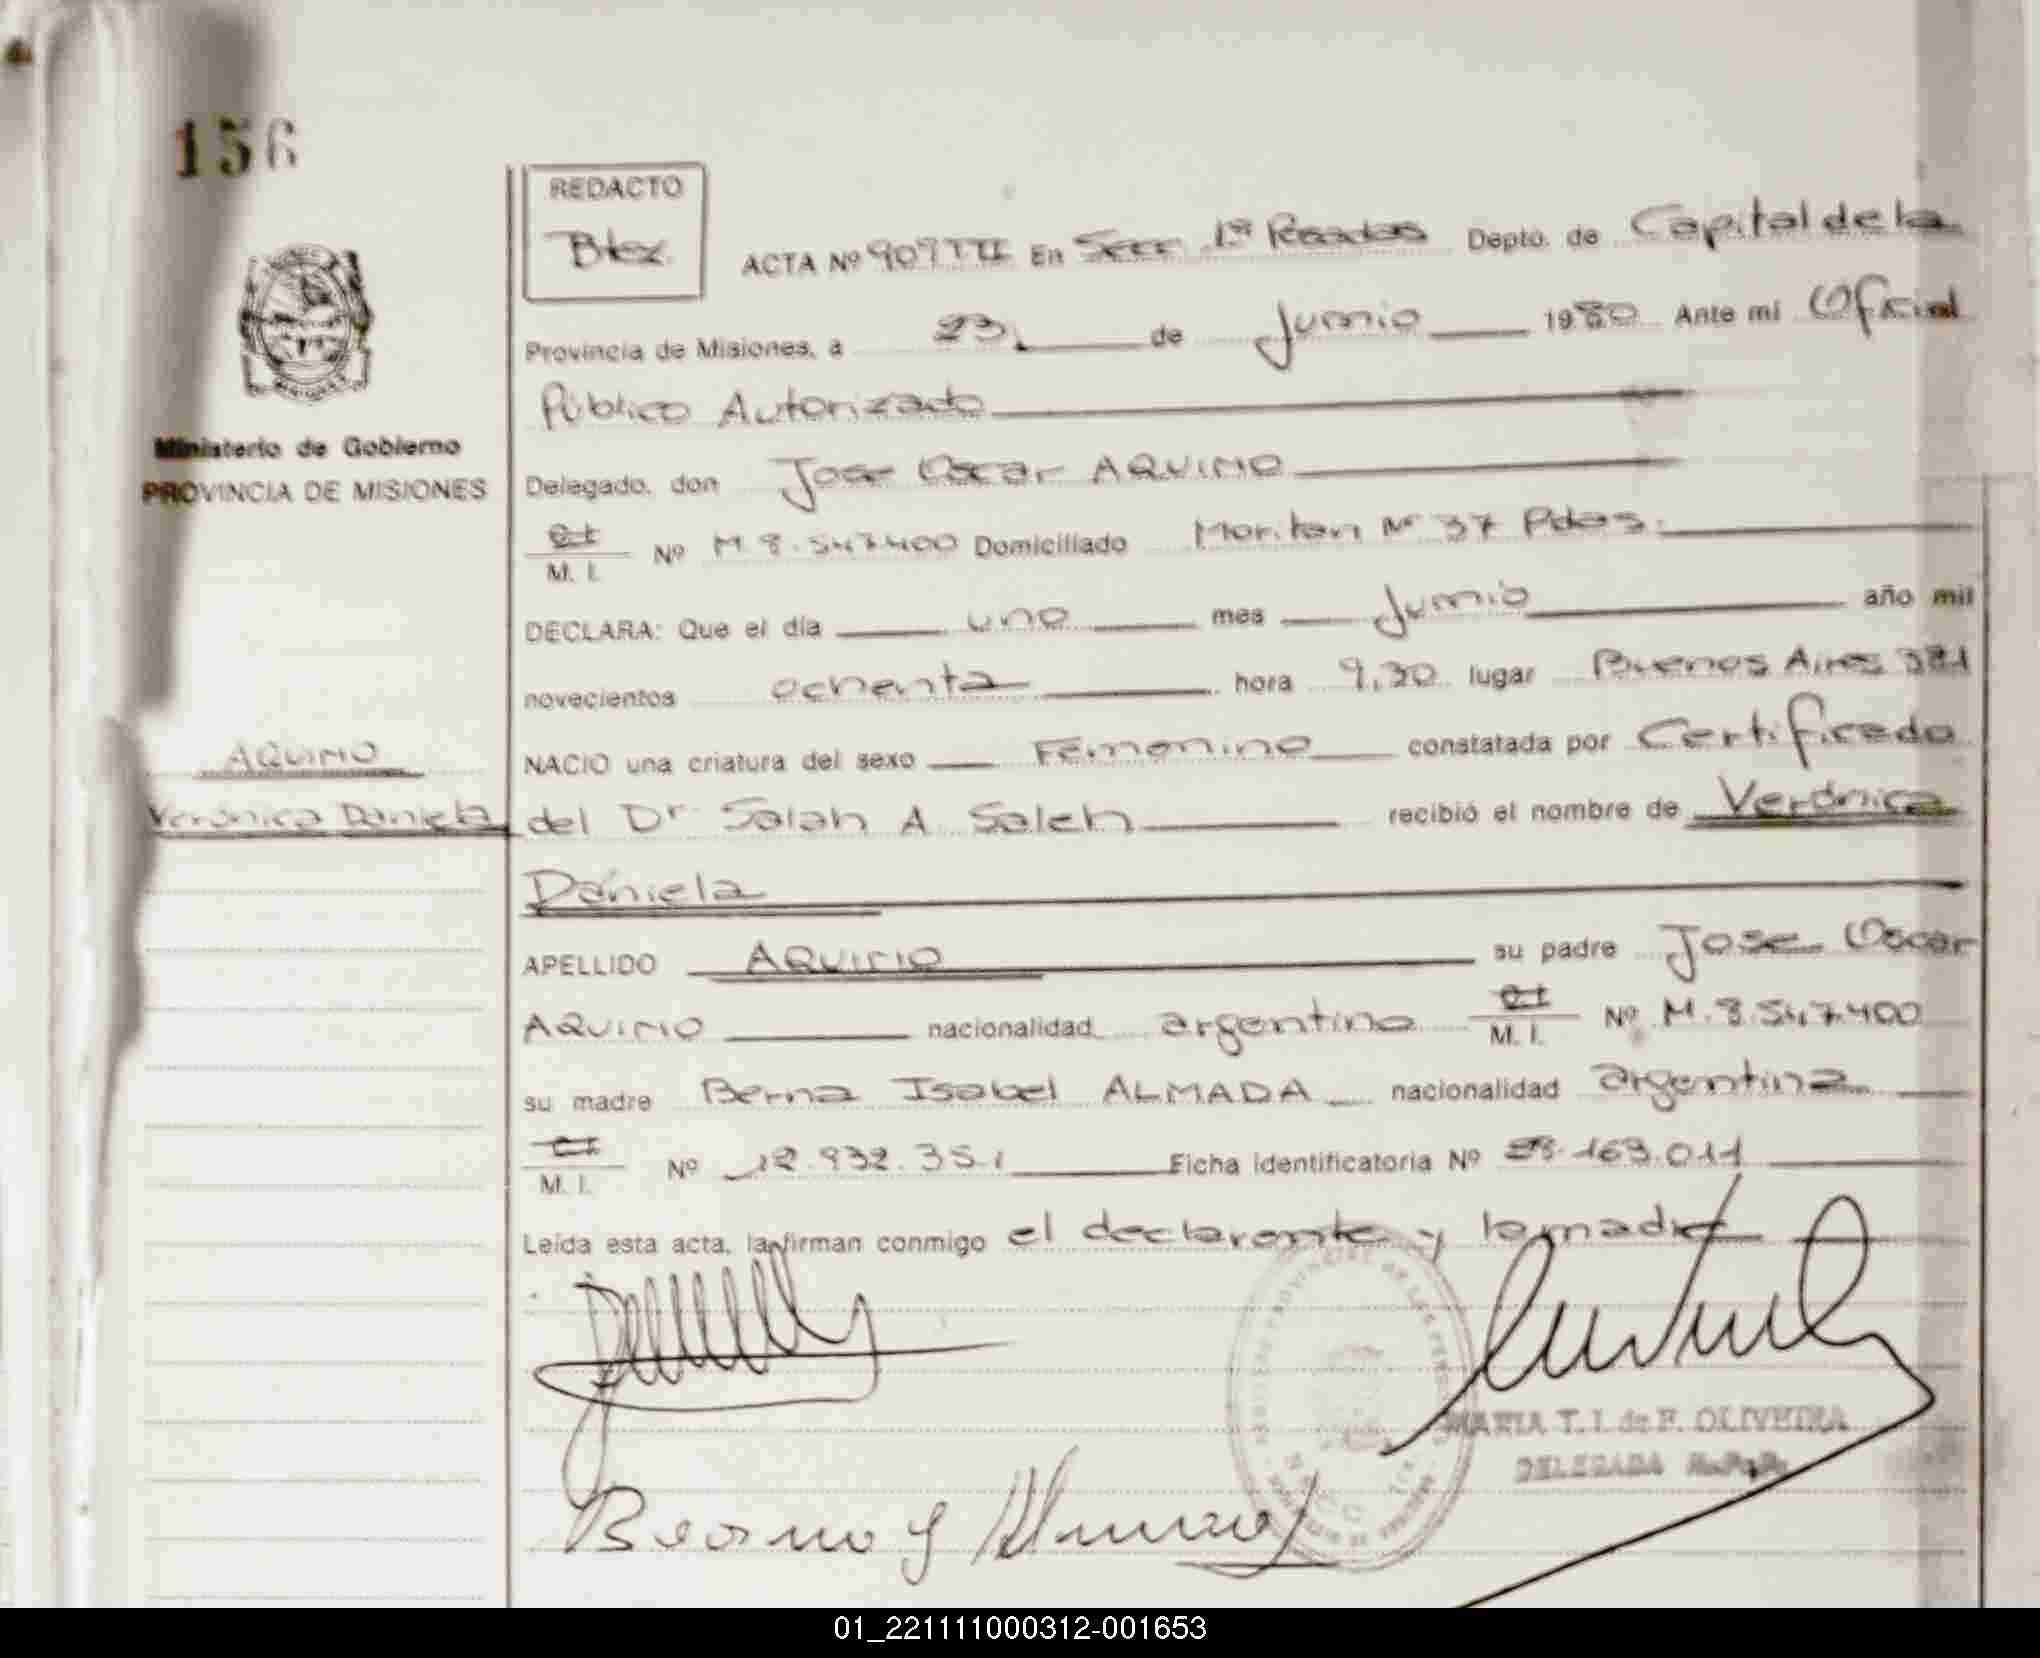 156
REDACTO
Btez.
ACTA Nº 909 TTI En Secc 1ª Posadas Depto. de Capital de la
Provincia de Misiones, a 23 de Junio 1980 Ante mi Oficial
Público Autorizado
Ministerio de Gobierno
PROVINCIA DE MISIONES
Delegado, don Jose Oscar AQUINO
M. I. Nº M. 8.547.400 Domiciliado Nº 37 Pdas.
DECLARA: Que el día uno mes Junio año mil
novecientos ochenta hora 9,30 lugar Buenos Aires 381
NACIO una criatura del sexo Femenino constatada por Certificado
AQUINO
Verónica Daniela
del Dr Salah A. Saleh recibió el nombre de Verónica
Daniela
APELLIDO AQUINO su padre Jose Oscar
AQUINO nacionalidad argentina M. I. Nº M. 8.547.400
su madre Berna Isabel ALMADA nacionalidad argentina
M. I. Nº 12.932.351 Ficha identificatoria Nº 28.163.011
Leída esta acta, la firman conmigo el declarante y la madre
MARIA T. I. de F. OLIVEIRA
DELEGADA R.P.P.
01_221111000312-001653